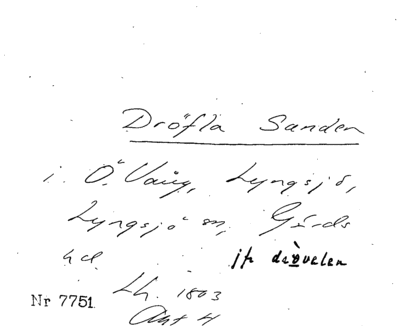 Dröfla Sanden
i Ö. Vång, Lyngsjö,
Lyngsjö sn, Gärds
hd. jfr drövelen
Lh. 1803
Nr 7751.
Akt 4